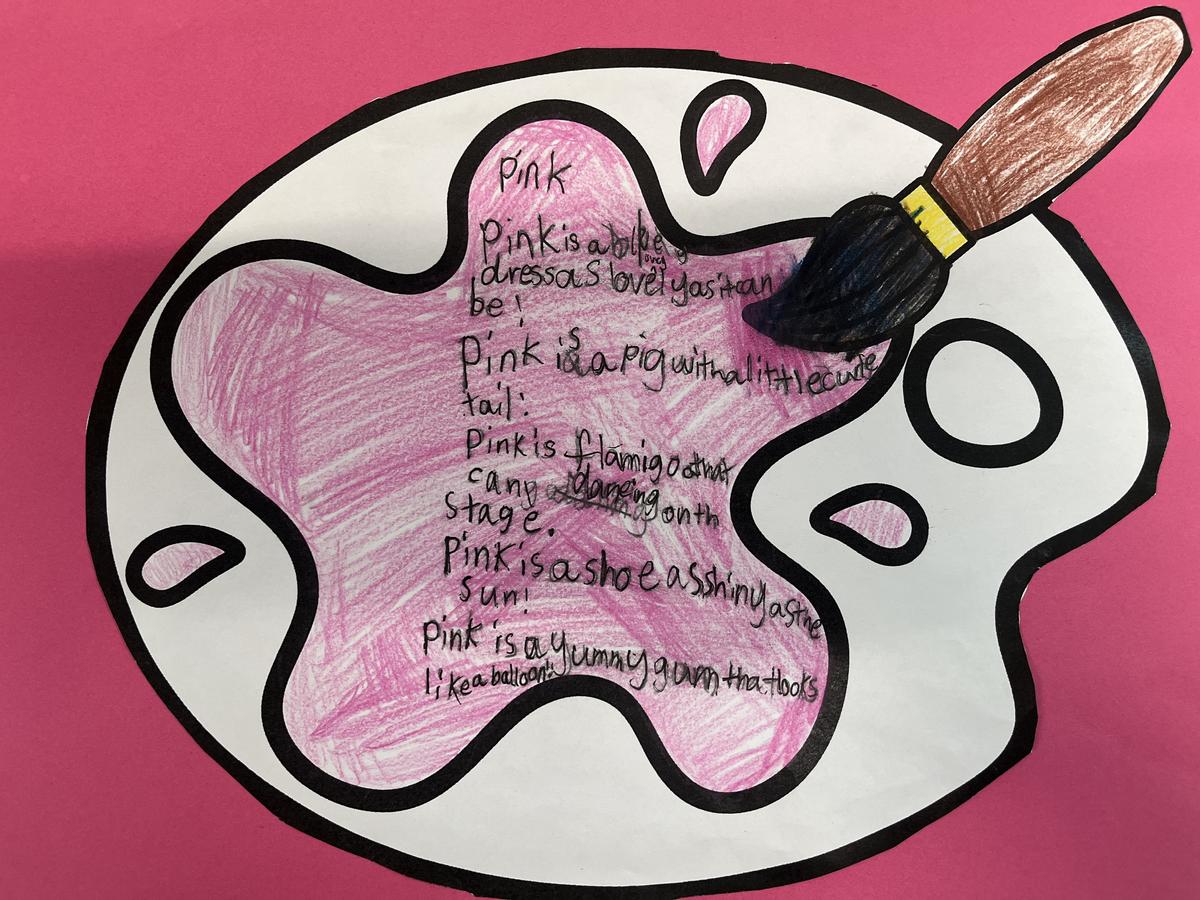 Pink
Pink is a
dress as lovely as it can
be!
Pink is a pig with a little cute
tail!
Pink is flamigo that
can dancing on th
stage.
Pink is a shoe as shiny as the
sun!
Pink is a yummy gum that looks
like a balloon!